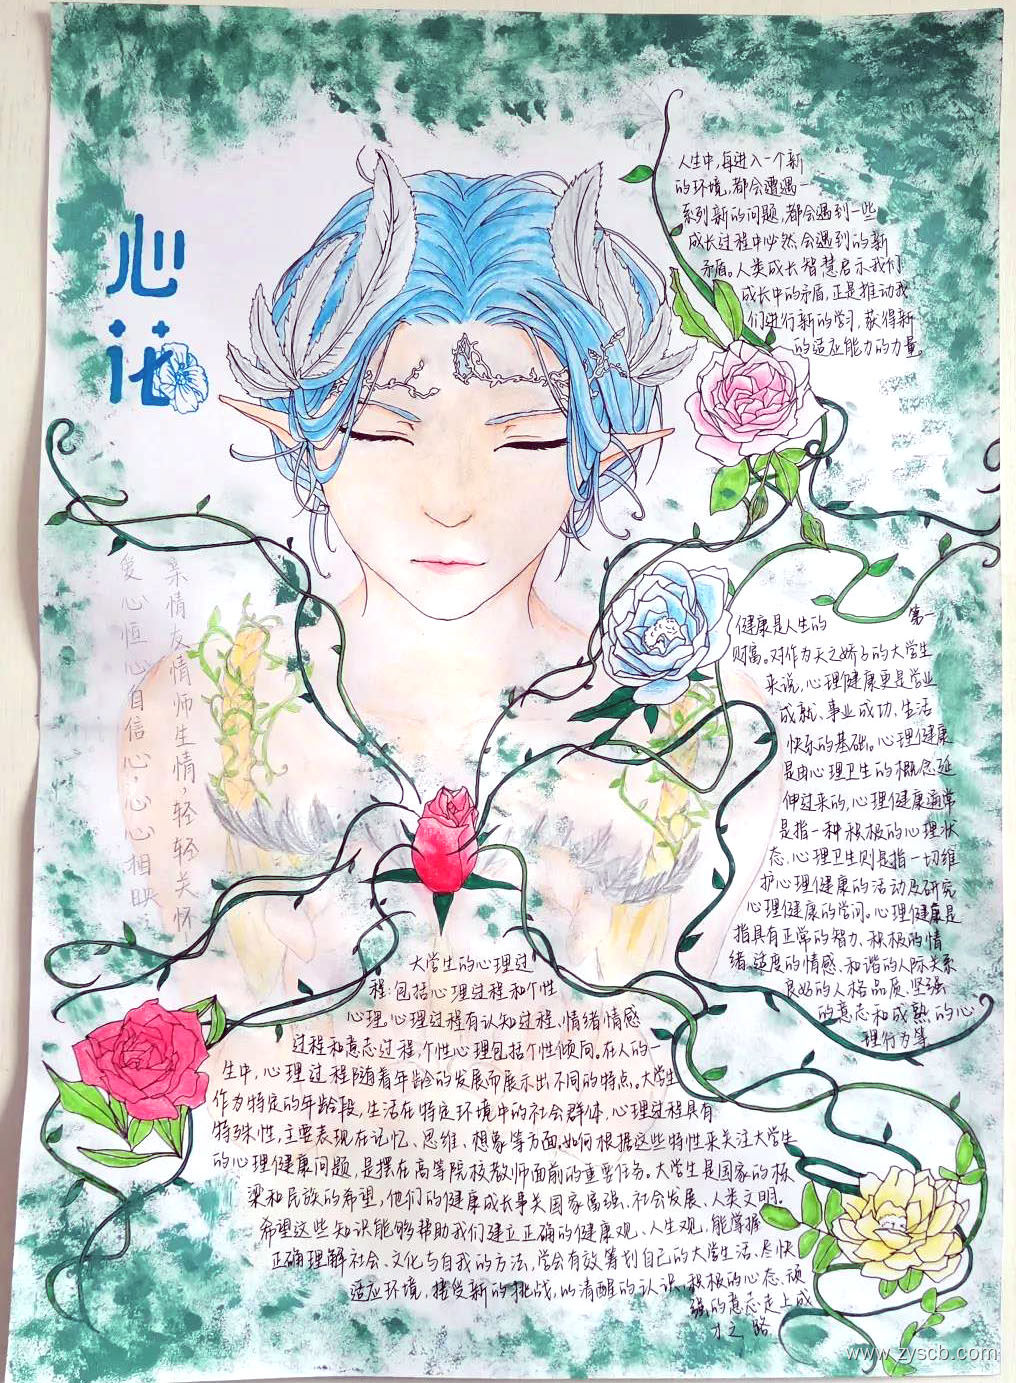 心
花
人生中,每进入一个新
的环境,都会遭遇一
系列新的问题,都会遇到一些
成长过程中必然会遇到的新
矛盾。人类成长智慧启示我们
成长中的矛盾,正是推动我
们进行新的学习,获得新
的适应能力的力量。
亲情友情师生情,轻轻关怀
爱心恒心自信心,心心相映
健康是人生的 第一
财富。对作为天之娇子的大学生
来说,心理健康更是学业
成就、事业成功、生活
快乐的基础。心理健康
是由心理卫生的概念延
伸过来的,心理健康通常
是指一种积极的心理状
态,心理卫生则是指一切维
护心理健康的活动及研究
心理健康的学问。心理健康是
指具有正常的智力、积极的情
绪、适度的情感、和谐的人际关系
良好的人格品质、坚强
的意志和成熟的心
理行为等
大学生的心理过
程:包括心理过程和个性
心理。心理过程有认知过程、情绪情感
过程和意志过程,个性心理包括个性倾向。在人的一
生中,心理过程随着年龄的发展而展示出不同的特点。大学生
作为特定的年龄段,生活在特定环境中的社会群体,心理过程具有
特殊性,主要表现在记忆、思维、想象等方面。如何根据这些特性来关注大学生
的心理健康问题,是摆在高等院校教师面前的重要任务。大学生是国家的栋
梁和民族的希望,他们的健康成长事关国家富强、社会发展、人类文明。
希望这些知识能够帮助我们建立正确的健康观、人生观,能掌握
正确理解社会、文化与自我的方法,学会有效筹划自己的大学生活、尽快
适应环境,接受新的挑战,以清醒的认识、积极的心态、顽
强的意志走上成
才之路
www.zyscb.com